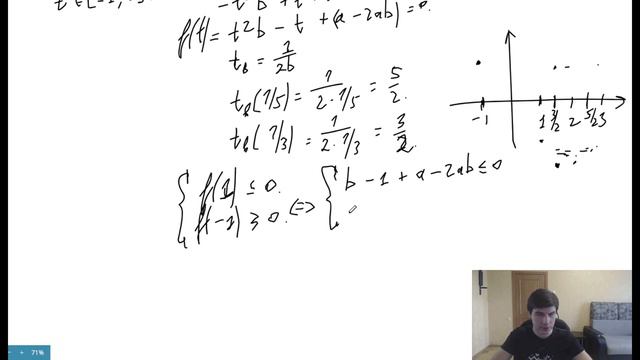 f(t) = t²b - t + (a - 2ab) = 0.
t_в = 1/2b
t_в(1/5) = 1/(2·1/5) = 5/2.
t_в(1/3) = 1/(2·1/3) = 3/2.
{ f(1) ≤ 0. f(-1) ≥ 0. <=> { b - 1 + a - 2ab ≤ 0
-1 1 3/2 2 5/2 3
71%